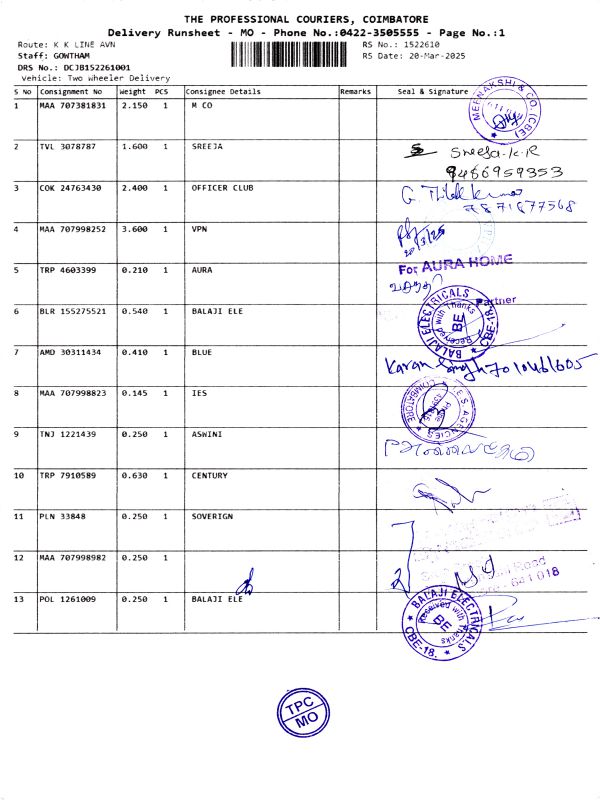 THE PROFESSIONAL COURIERS, COIMBATORE
Delivery Runsheet - MO - Phone No.:0422-3505555 - Page No.:1
Route: K K LINE AVN
RS No.: 1522610
Staff: GOWTHAM
RS Date: 20-Mar-2025
DRS No.: DCJB152261001
Vehicle: Two Wheeler Delivery
S No Consignment No Weight PCS Consignee Details Remarks Seal & Signature
1 MAA 707381831 2.150 1 M CO
MEENAKSHI & CO. (CBE)
2 TVL 3078787 1.600 1 SREEJA
Sreeja.K.R
9486959353
3 COK 24763430 2.400 1 OFFICER CLUB
G. Thilak kumar
9871877568
4 MAA 707998252 3.600 1 VPN
20/3/25
5 TRP 4603399 0.210 1 AURA
For AURA HOME
Partner
6 BLR 155275521 0.540 1 BALAJI ELE
BALAJI ELECTRICALS CBE-18.
Received with Thanks
BE
7 AMD 30311434 0.410 1 BLUE
Karan Singh 7010461605
8 MAA 707998823 0.145 1 IES
I.E.S. AGENCIES COIMBATORE
9 TNJ 1221439 0.250 1 ASWINI
10 TRP 7910589 0.630 1 CENTURY
11 PLN 33848 0.250 1 SOVERIGN
12 MAA 707998982 0.250 1
Road
641 018
13 POL 1261009 0.250 1 BALAJI ELE
BALAJI ELECTRICALS CBE-18.
Received with Thanks
BE
TPC
MO